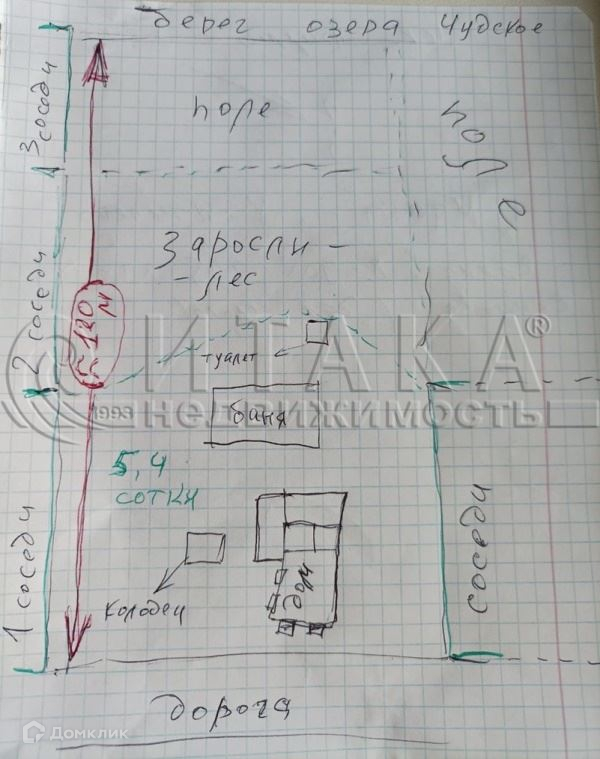 берег озера Чудское
3 соседи
поле
поле
Заросли -
- лес
2 соседи
≈ 120 м
туалет
ИТАКА®
1993 недвижимость
баня
5,4
сотки
1 соседи
соседи
дом
колодец
дорога
Домклик